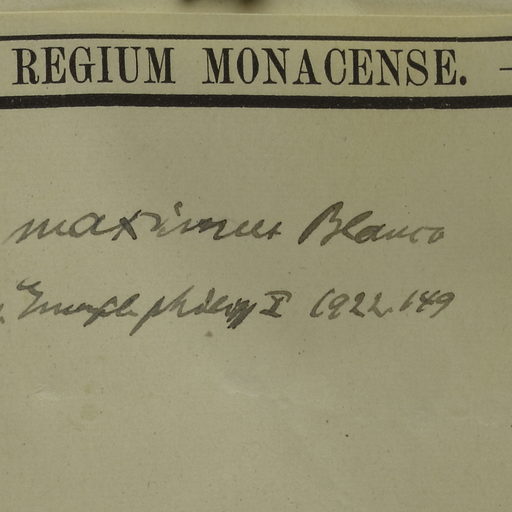 REGIUM MONACENSE. -
maximus Blanco
Enum. philipp I 1922. 149